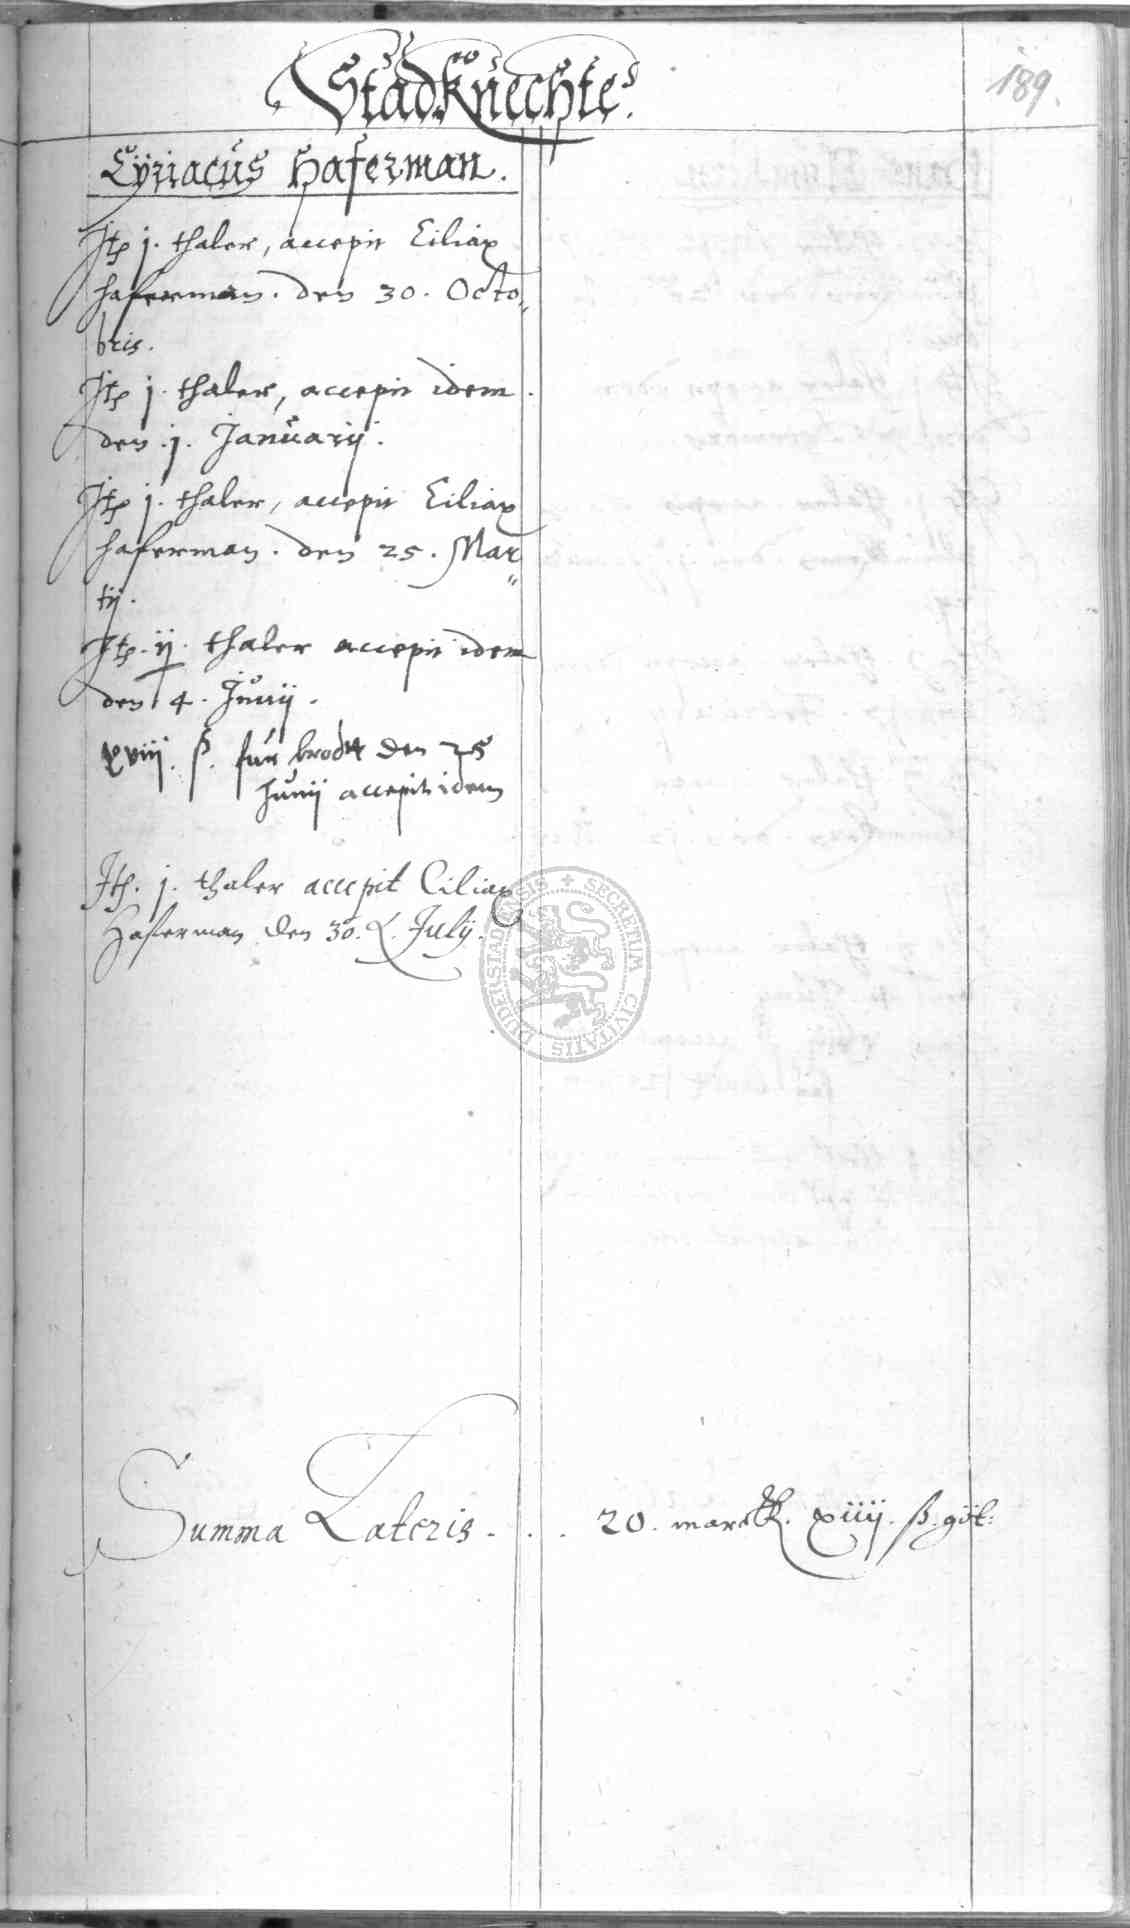 Stadknechte.
189.
Cÿriacus Haferman.
Jtp j. thaler, accepit Ciliax
haferman. den 30. Octo„
bris.
Jtp j. thaler, accepit idem.
den .j. Januarÿ.
Jtp j. thaler, accepit Ciliax
haferman. den 25. Mar„
tÿ.
Jtp. ij. thaler accepit idem
den 4. Junÿ.
xviij. ß. fur brodt den 25
Junij accepit idem
Jtp. j. thaler accepit Ciliax
Haferman den 30. Julÿ.
SECRETUM CIVITATIS DUDERSTADENSIS
Summa Lateris. . . 20. marck. xiiij. ß. göt: